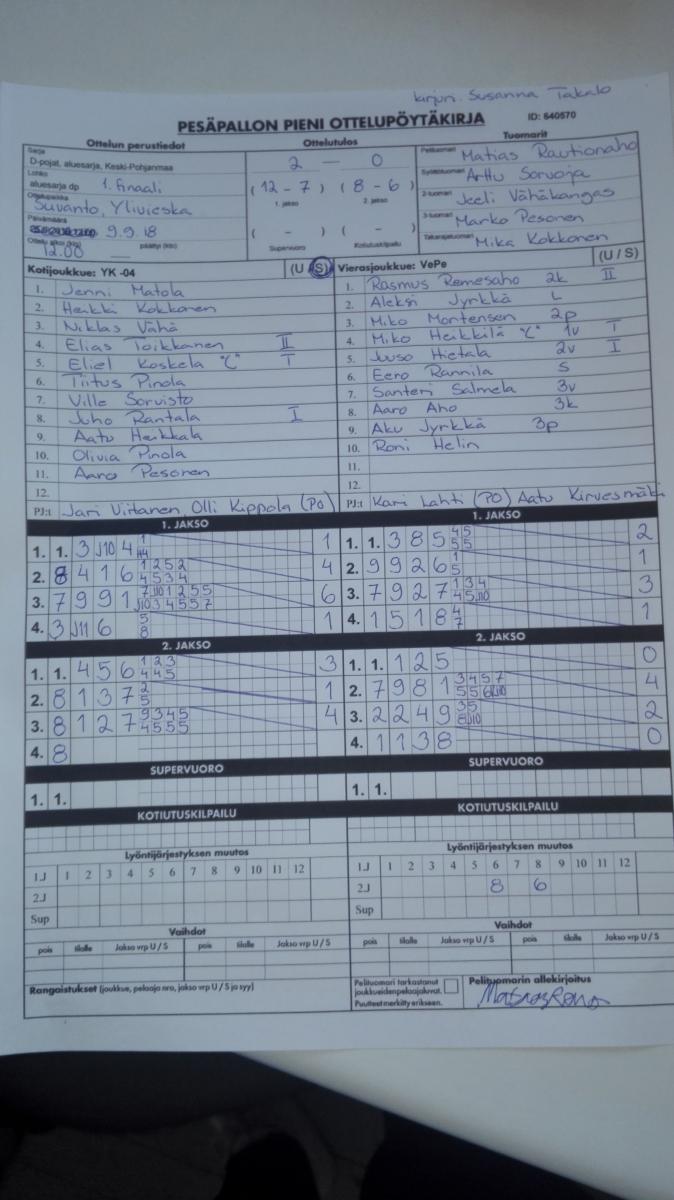 kirjuri. Susanna Takalo
PESÄPALLON PIENI OTTELUPÖYTÄKIRJA ID: 640570
Ottelun perustiedot Ottelutulos Tuomarit
Sarja
D-pojat, aluesarja, Keski-Pohjanmaa
2 — 0
Pelituomari Matias Rautionaho
Lohko
aluesarja dp 1. finaali
(12 - 7) (8 - 6)
1. jakso 2. jakso
Syöttötuomari Arttu Sorvoja
Ottelupaikka
Suvanto, Ylivieska
2-tuomari Jeeli Vähäkangas
Päivämäärä
9.9.18
( - ) ( - )
3-tuomari Marko Pesonen
Ottelu alkoi (klo) päättyi (klo)
12.00
Supervuoro Kotiutuskilpailu
Takarajatuomari Mika Kokkonen
Kotijoukkue: YK -04 (U / S) Vierasjoukkue: VePe (U / S)
1. Jenni Matola
2. Heikki Kokkonen
3. Niklas Vähä
4. Elias Toikkanen II
5. Eliel Koskela "C" I
6. Tiitus Pinola
7. Ville Sorvisto
8. Juho Rantala I
9. Aatu Heikkala
10. Olivia Pinola
11. Aaro Pesonen
12.
PJ:t Jari Virtanen, Olli Kippola (PO)
1. Rasmus Remesaho 2k II
2. Aleksi Jyrkkä L
3. Miko Mortensen 2p
4. Miko Heikkilä "C" 1v I
5. Juuso Hietala 2v I
6. Eero Rannila S
7. Santeri Salmela 3v
8. Aaro Aho 3k
9. Aku Jyrkkä 3p
10. Roni Helin
11.
12.
PJ:t Kari Lahti (PO) Aatu Kirvesmäki
1. JAKSO 1. JAKSO
1. 1. 3 J10 4 1
2. 8 4 1 6 1 2 5 2 4
4 5 3 4
3. 7 9 9 1 6
4. 3 J11 6 5 1
8
1. 1. 3 8 5 4 5 2
5 5
2. 9 9 2 6 1 1
5
3. 7 9 2 7 1 3 4 3
4 5 J10
4. 1 5 1 8 4 1
7
2. JAKSO 2. JAKSO
1. 1. 4 5 6 1 2 3 3
4 4 5
2. 8 1 3 7 2 1
5
3. 8 1 2 7 9 3 4 5 4
4 5 5 5
4. 8
1. 1. 1 2 5 0
2. 7 9 8 1 3 4 5 7 4
5 5 6 J10
3. 2 2 4 9 3 5 2
8 J10
4. 1 1 3 8 0
SUPERVUORO SUPERVUORO
1. 1. 1. 1.
KOTIUTUSKILPAILU KOTIUTUSKILPAILU
Lyöntijärjestyksen muutos Lyöntijärjestyksen muutos
1.J 1 2 3 4 5 6 7 8 9 10 11 12 1.J 1 2 3 4 5 6 7 8 9 10 11 12
2.J 2.J 8 6
Sup Sup
Vaihdot Vaihdot
pois tilalle Jakso vrp U / S pois tilalle Jakso vrp U / S pois tilalle Jakso vrp U / S pois tilalle Jakso vrp U / S
Rangaistukset (joukkue, pelaaja nro, jakso vrp U / S ja syy)
Pelituomari tarkastanut
joukkueiden pelaajaluvat.
Puutteet merkitty erikseen.
Pelituomarin allekirjoitus